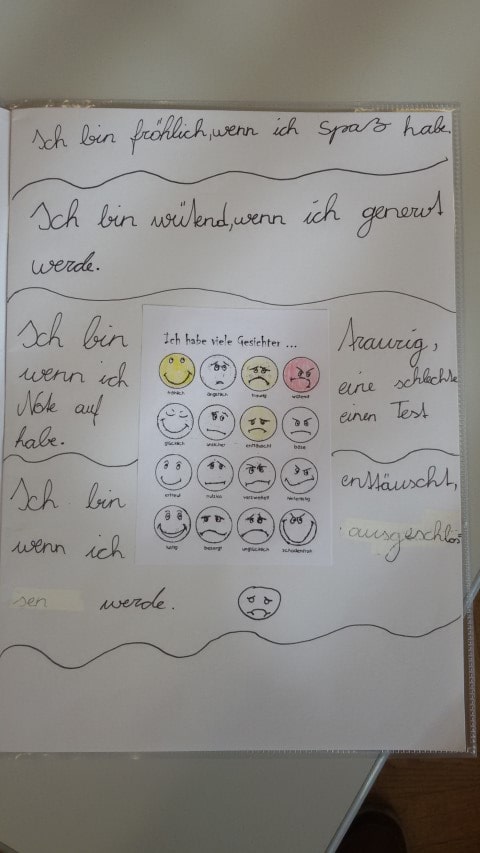 Ich bin fröhlich, wenn ich spaß habe
Ich bin wütend, wenn ich genervt
werde.
Ich bin traurig,
wenn ich eine schlechte
Note auf einen Test
habe.
Ich habe viele Gesichter ...
fröhlich ängstlich traurig wütend
glücklich unsicher enttäuscht böse
erfreut verzweifelt hinterlistig
besorgt unglücklich schadenfroh
Ich bin enttäuscht,
wenn ich ausgeschlos
sen werde.